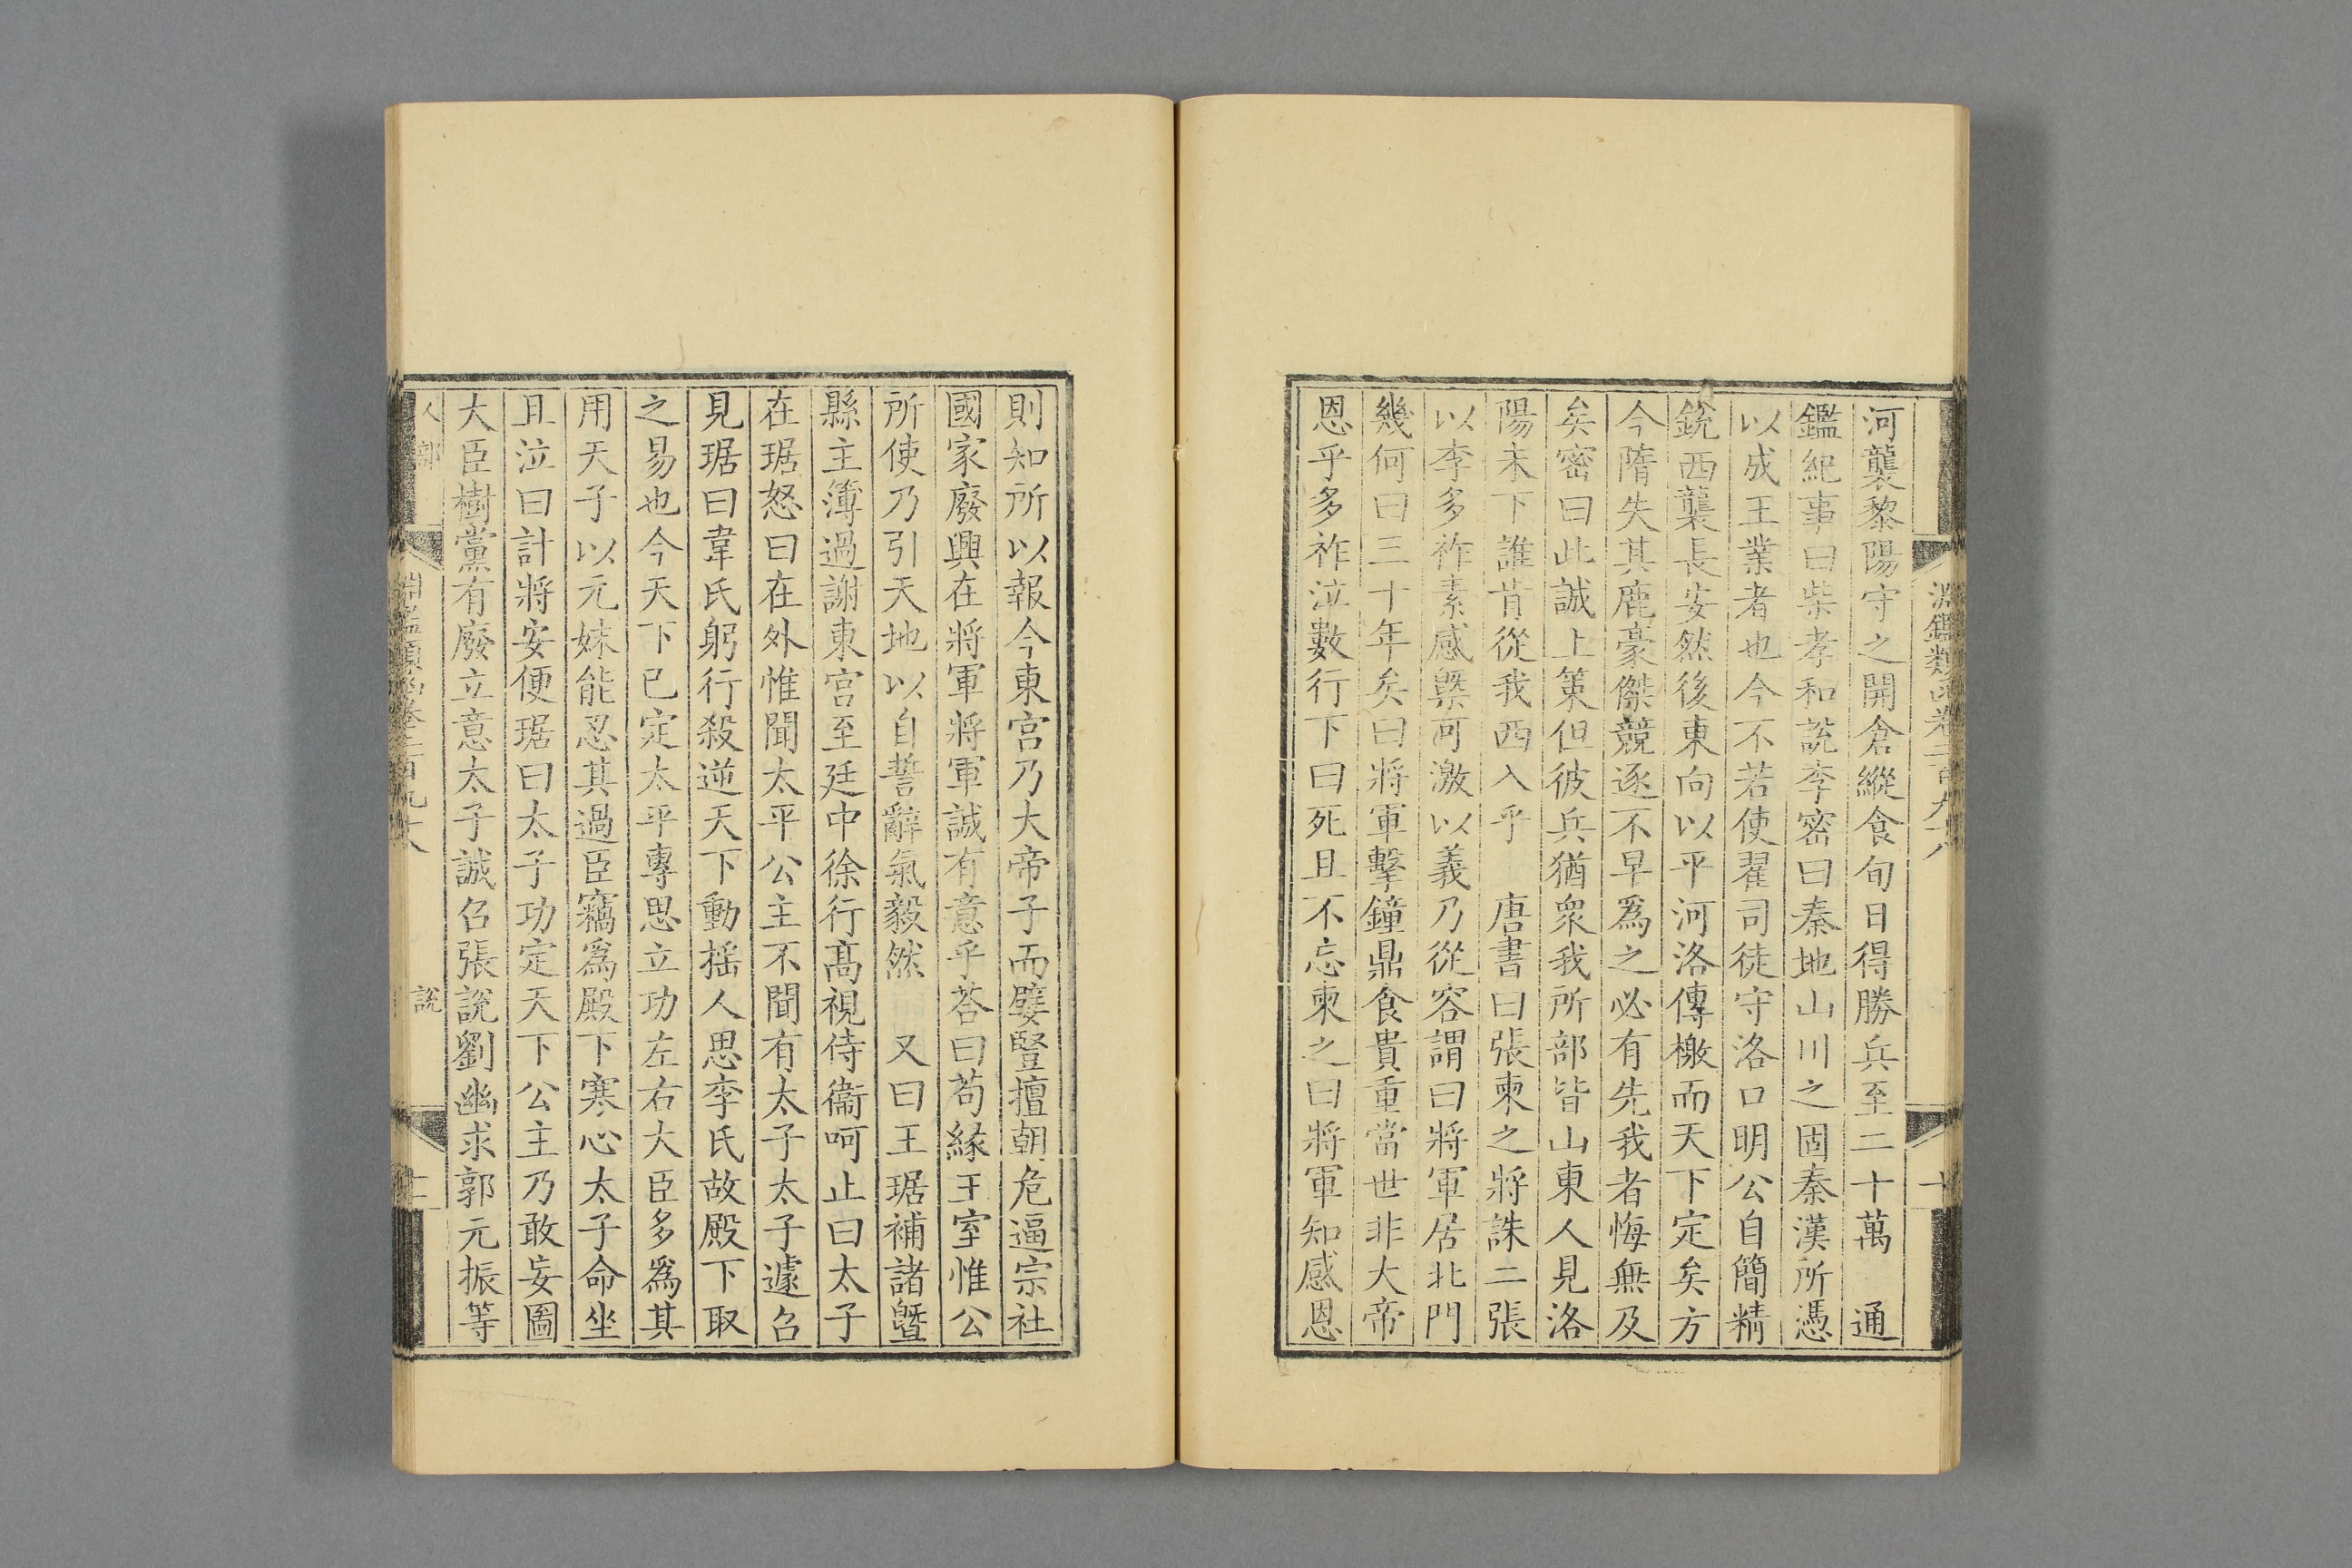 淵鑑類函卷二百九十八
河襲黎陽守之開倉縱食旬日得勝兵至二十萬　通
鑑紀事曰柴孝和說李密曰秦地山川之固秦漢所憑
以成王業者也今不若使翟司徒守洛口明公自簡精
銳西襲長安然後東向以平河洛傳檄而天下定矣方
今隋失其鹿豪傑競逐不早爲之必有先我者悔無及
矣密曰此誠上策但彼兵猶衆我所部皆山東人見洛
陽未下誰肯從我西入乎　唐書曰張柬之將誅二張
以李多祚素感槩可激以義乃從容謂曰將軍居北門
幾何曰三十年矣曰將軍擊鐘鼎食貴重當世非大帝
恩乎多祚泣數行下曰死且不忘柬之曰將軍知感恩
則知所以報今東宮乃大帝子而嬖豎擅朝危逼宗社
國家廢興在將軍將軍誠有意乎荅曰苟緣王室惟公
所使乃引天地以自誓辭氣毅然　又曰王琚補諸曁
縣主簿過謝東宮至廷中徐行高視侍衞呵止曰太子
在琚怒曰在外惟聞太平公主不聞有太子太子遽召
見琚曰韋氏躬行殺逆天下動揺人思李氏故殿下取
之易也今天下已定太平專思立功左右大臣多爲其
用天子以元妹能忍其過臣竊爲殿下寒心太子命坐
且泣曰計將安便琚曰太子功定天下公主乃敢妄圖
大臣樹黨有廢立意太子誠召張說劉幽求郭元振等
人部　淵鑑類函卷二百九十八　說　十一